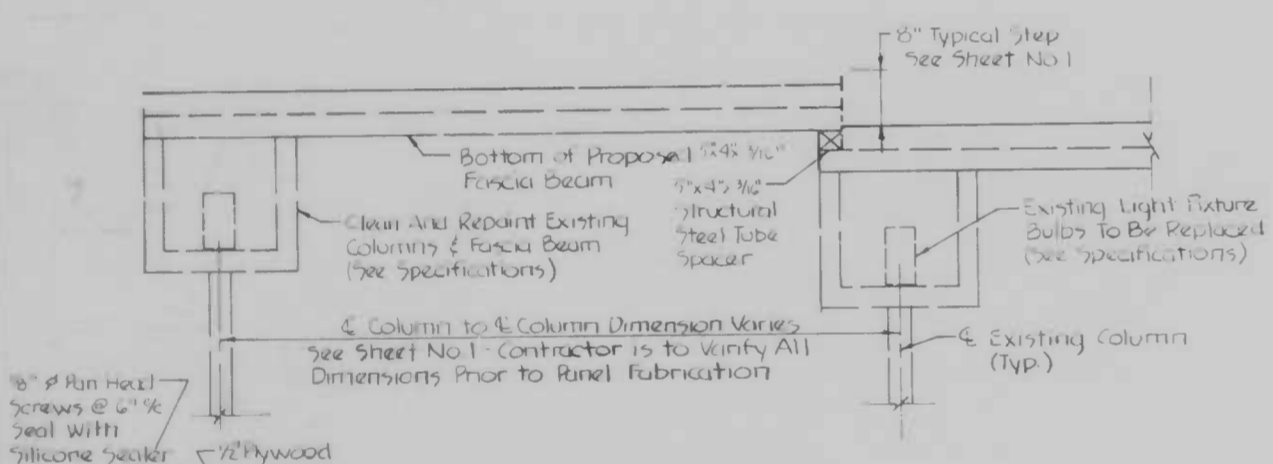 8" Typical Step
See Sheet No 1
Bottom of Proposal
Fascia Beam
5"x 4"x 3/16"
Structural
Steel Tube
Spacer
Clean And Repaint Existing
Columns & Fascia Beam
(See Specifications)
Existing Light Fixture
Bulbs To Be Replaced
(See Specifications)
℄ Column to ℄ Column Dimension Varies
See Sheet No 1 - Contractor is to Varify All
Dimensions Prior to Panel Fabrication
℄ Existing Column
(Typ.)
8" ø Pan Head
Screws @ 6" %
Seal With
Silicone Sealer
1/2" Plywood